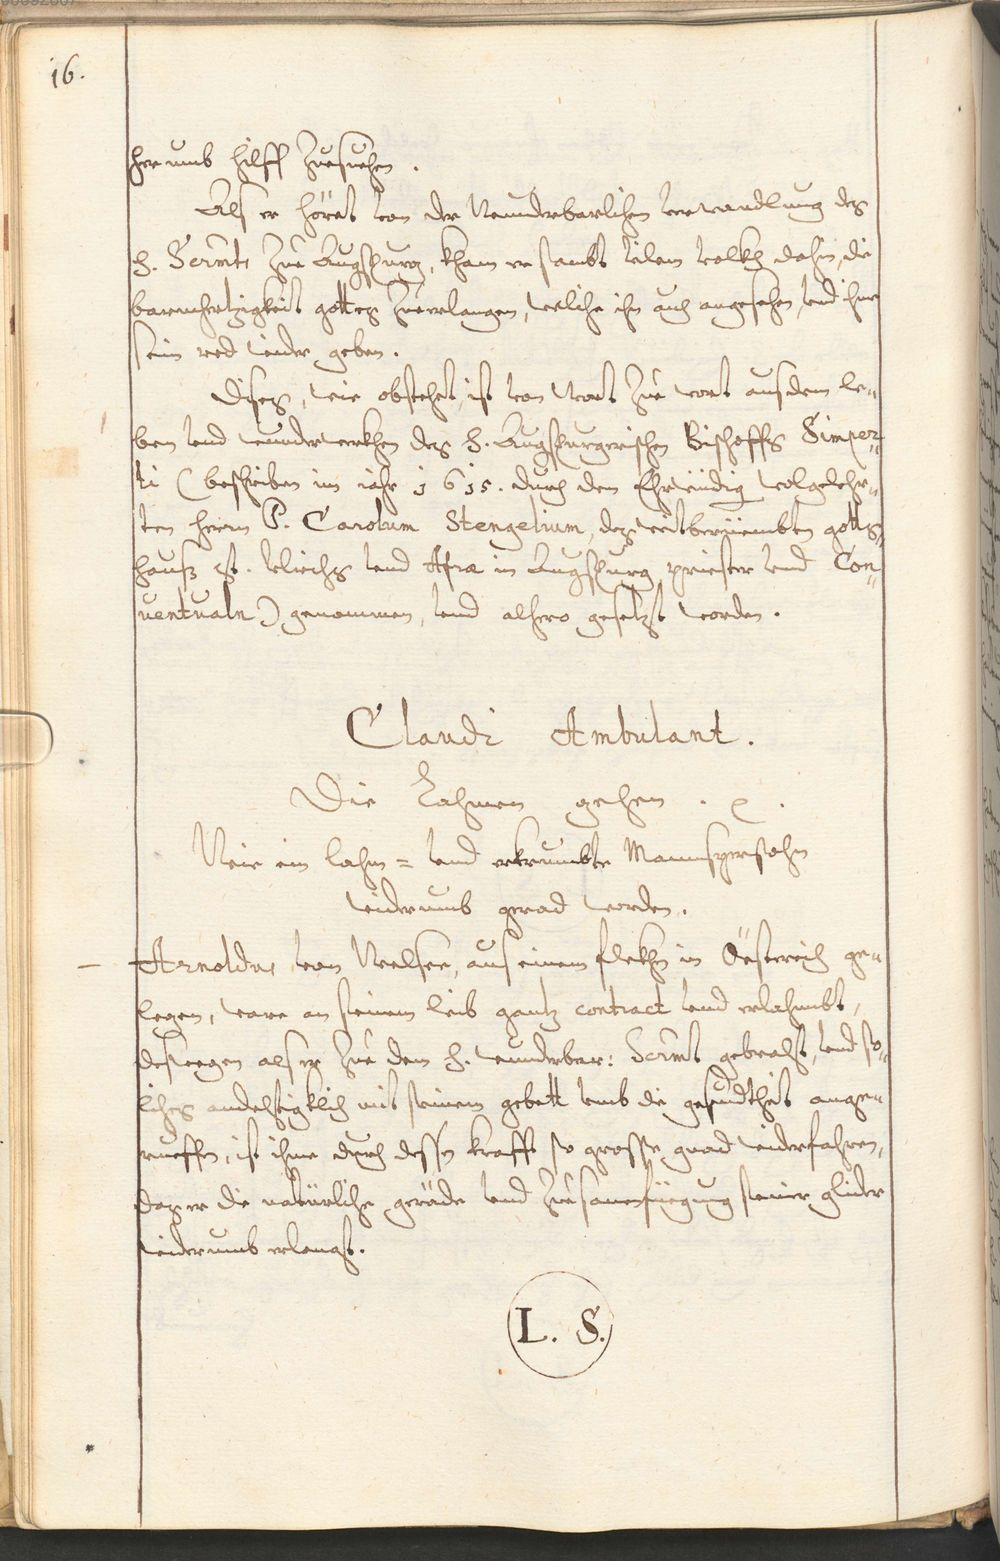 16.
herumb hilff zuesuechen.
Alß er höret von der Wunderbarlichen verwandlung deß
H. Sacrmts zue Augspurg, kham er sambt vilem volkh dahin, die
barmhertzigkeit gottes zuerlangen, weliche ihn auch angesehen, vnd ihme
sein red wider geben.
Dises, wie obstehet, ist von Wort zue wort auß dem le„
ben vnd wunderwerkhen deß H. Augspurgerischen Bischoffs Simper„
ti (beschriben im iahr 1615. durch den Ehrwürdig wolgelehr„
ten herrn P. Carolum Stengelium, deß weitberüembten gotts„
hauß St. Vlrichs vnd Afræ in Augspurg priester vnd Con„
uentualn) genommen, vnd alhero gesetzt worden.
Claudi Ambulant.
Die Lahmen gehen.
Wie ein lahm= vnd erkrumbte Mannspersohn
widerumb gerad worden.
Arnoldus von Welser, auß einem flekhen in Österreich ge„
legen, ware an seinem leib gantz contract vnd erlahmbt,
deßwegen alß er zue dem H. wunderbar: Sacrmt gebracht, vnd so„
liches andechtigklich mit seinem gebett vmb die gesundtheit ange„
rueffen, ist ihme durch dessen krafft so grosse gnad widerfahren,
daß er die natürliche geräde vnd zuesamenfüegung seiner glider
widerumb erlangt.
L. S.